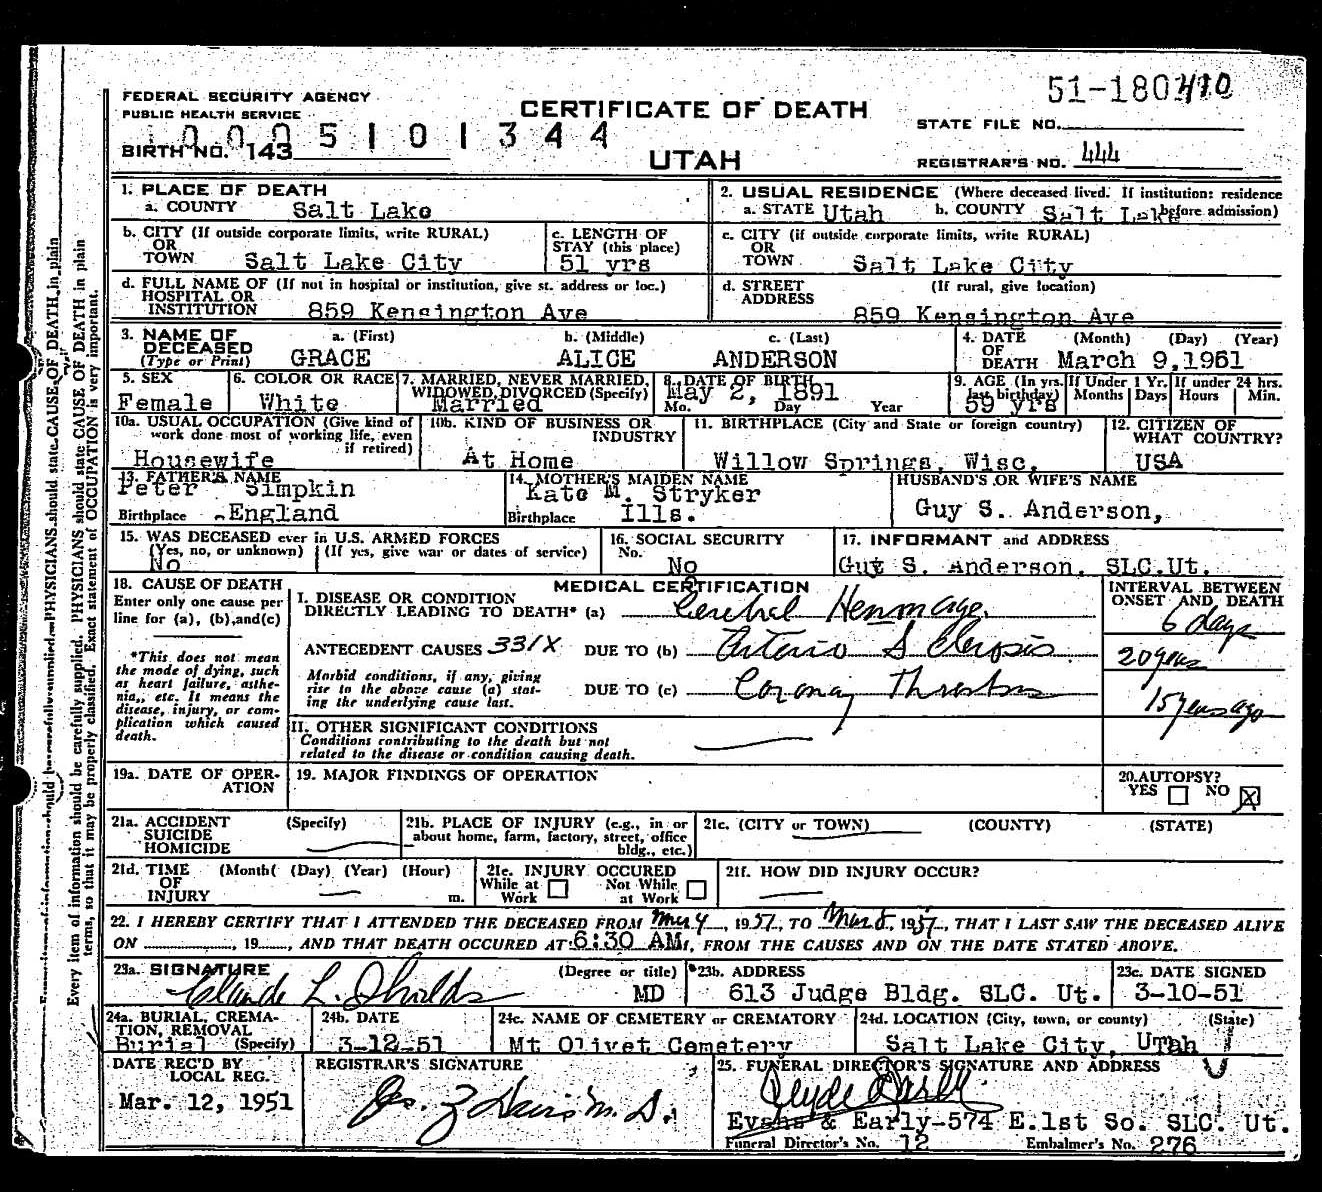 51-1801410
FEDERAL SECURITY AGENCY
PUBLIC HEALTH SERVICE
CERTIFICATE OF DEATH
STATE FILE NO.
10005101344
BIRTH NO. 143
UTAH
REGISTRAR'S NO. 444
1. PLACE OF DEATH
a. COUNTY Salt Lake
2. USUAL RESIDENCE (Where deceased lived. If institution: residence before admission)
a. STATE Utah b. COUNTY Salt Lake
b. CITY (If outside corporate limits, write RURAL)
OR
TOWN Salt Lake City
c. LENGTH OF
STAY (this place)
51 yrs
c. CITY (if outside corporate limits, write RURAL)
OR
TOWN Salt Lake City
d. FULL NAME OF (If not in hospital or institution, give st. address or loc.)
HOSPITAL OR
INSTITUTION 859 Kensington Ave
d. STREET (If rural, give location)
ADDRESS
859 Kensington Ave
3. NAME OF DECEASED
(Type or Print)
a. (First) b. (Middle) c. (Last)
GRACE ALICE ANDERSON
4. DATE OF DEATH (Month) (Day) (Year)
March 9,1951
5. SEX
Female
6. COLOR OR RACE
White
7. MARRIED, NEVER MARRIED,
WIDOWED, DIVORCED (Specify)
Married
8. DATE OF BIRTH
May 2, 1891
Mo. Day Year
9. AGE (In yrs. last birthday)
59 yrs
If Under 1 Yr.
Months Days
If under 24 hrs.
Hours Min.
10a. USUAL OCCUPATION (Give kind of
work done most of working life, even
if retired)
Housewife
10b. KIND OF BUSINESS OR
INDUSTRY
At Home
11. BIRTHPLACE (City and State or foreign country)
Willow Springs, Wisc.
12. CITIZEN OF
WHAT COUNTRY?
USA
13. FATHER'S NAME
Peter Simpkin
Birthplace England
14. MOTHER'S MAIDEN NAME
Kate M. Stryker
Birthplace Ills.
HUSBAND'S OR WIFE'S NAME
Guy S. Anderson,
15. WAS DECEASED ever in U.S. ARMED FORCES
(Yes, no, or unknown) (If yes, give war or dates of service)
No
16. SOCIAL SECURITY
No.
No
17. INFORMANT and ADDRESS
Guy S. Anderson, SLC.Ut.
18. CAUSE OF DEATH
Enter only one cause per
line for (a), (b),and(c)
*This does not mean
the mode of dying, such
as heart failure, asthe-
nia, etc. It means the
disease, injury, or com-
plication which caused
death.
MEDICAL CERTIFICATION
I. DISEASE OR CONDITION
DIRECTLY LEADING TO DEATH* (a) Cerebral Hemmorage.
ANTECEDENT CAUSES 331X DUE TO (b) Arterio Sclerosis.
Morbid conditions, if any, giving
rise to the above cause (a) stat-
ing the underlying cause last.
DUE TO (c) Coronary Thrombus
II. OTHER SIGNIFICANT CONDITIONS
Conditions contributing to the death but not
related to the disease or condition causing death.
INTERVAL BETWEEN
ONSET AND DEATH
6 days
20 years
15 years ago
19a. DATE OF OPER-
ATION
19. MAJOR FINDINGS OF OPERATION
20. AUTOPSY?
YES NO X
21a. ACCIDENT
SUICIDE
HOMICIDE
(Specify)
21b. PLACE OF INJURY (e.g., in or
about home, farm, factory, street, office
bldg., etc.)
21c. (CITY or TOWN) (COUNTY) (STATE)
21d. TIME
OF
INJURY
(Month( (Day) (Year) (Hour)
m.
21e. INJURY OCCURED
While at Work Not While at Work
21f. HOW DID INJURY OCCUR?
22. I HEREBY CERTIFY THAT I ATTENDED THE DECEASED FROM Mar 4, 1951, TO Mar 8, 1951, THAT I LAST SAW THE DECEASED ALIVE
ON , 19 , AND THAT DEATH OCCURED AT 6:30 AM, FROM THE CAUSES AND ON THE DATE STATED ABOVE.
23a. SIGNATURE (Degree or title)
Claude L. Shields MD
23b. ADDRESS
613 Judge Bldg. SLC. Ut.
23c. DATE SIGNED
3-10-51
24a. BURIAL, CREMA-
TION, REMOVAL
Burial (Specify)
24b. DATE
3-12-51
24c. NAME OF CEMETERY or CREMATORY
Mt Olivet Cemetery
24d. LOCATION (City, town, or county) (State)
Salt Lake City, Utah
DATE REC'D BY
LOCAL REG.
Mar. 12, 1951
REGISTRAR'S SIGNATURE
25. FUNERAL DIRECTOR'S SIGNATURE AND ADDRESS
Evans & Early-574 E.1st So. SLC. Ut.
Funeral Director's No. 12 Embalmer's No. 276
Every item of information should be carefully supplied. PHYSICIANS should state CAUSE OF DEATH in plain
terms, so that it may be properly classified. Exact statement of OCCUPATION is very important.